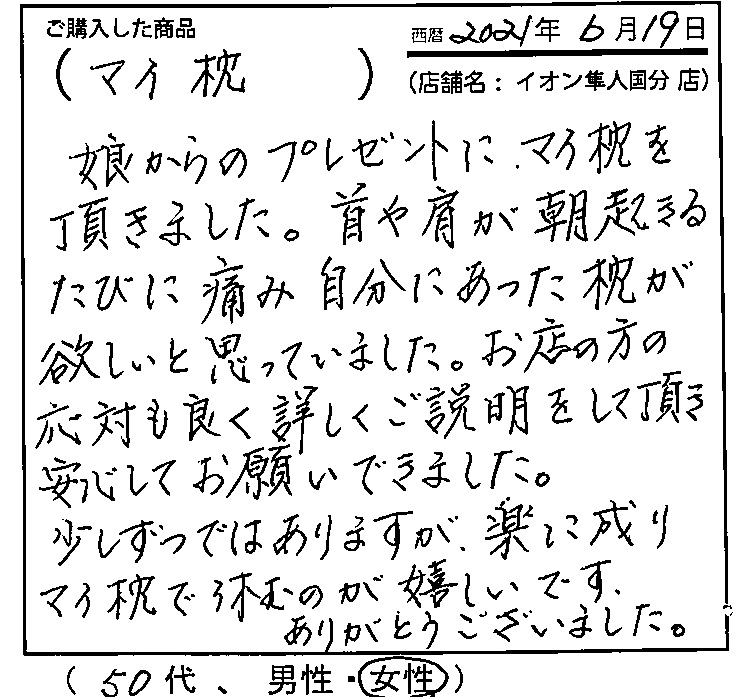 ご購入した商品
西暦 2021年 6月19日
(マイ枕)
(店舗名：イオン隼人国分 店)
娘からのプレゼントに、マイ枕を
頂きました。首や肩が朝起きる
たびに痛み自分にあった枕が
欲しいと思っていました。お店の方の
応対も良く詳しくご説明をして頂き
安心してお願いできました。
少しずつではありますが、楽に成り
マイ枕で休むのが嬉しいです、
ありがとうございました。
(50代、男性・女性)